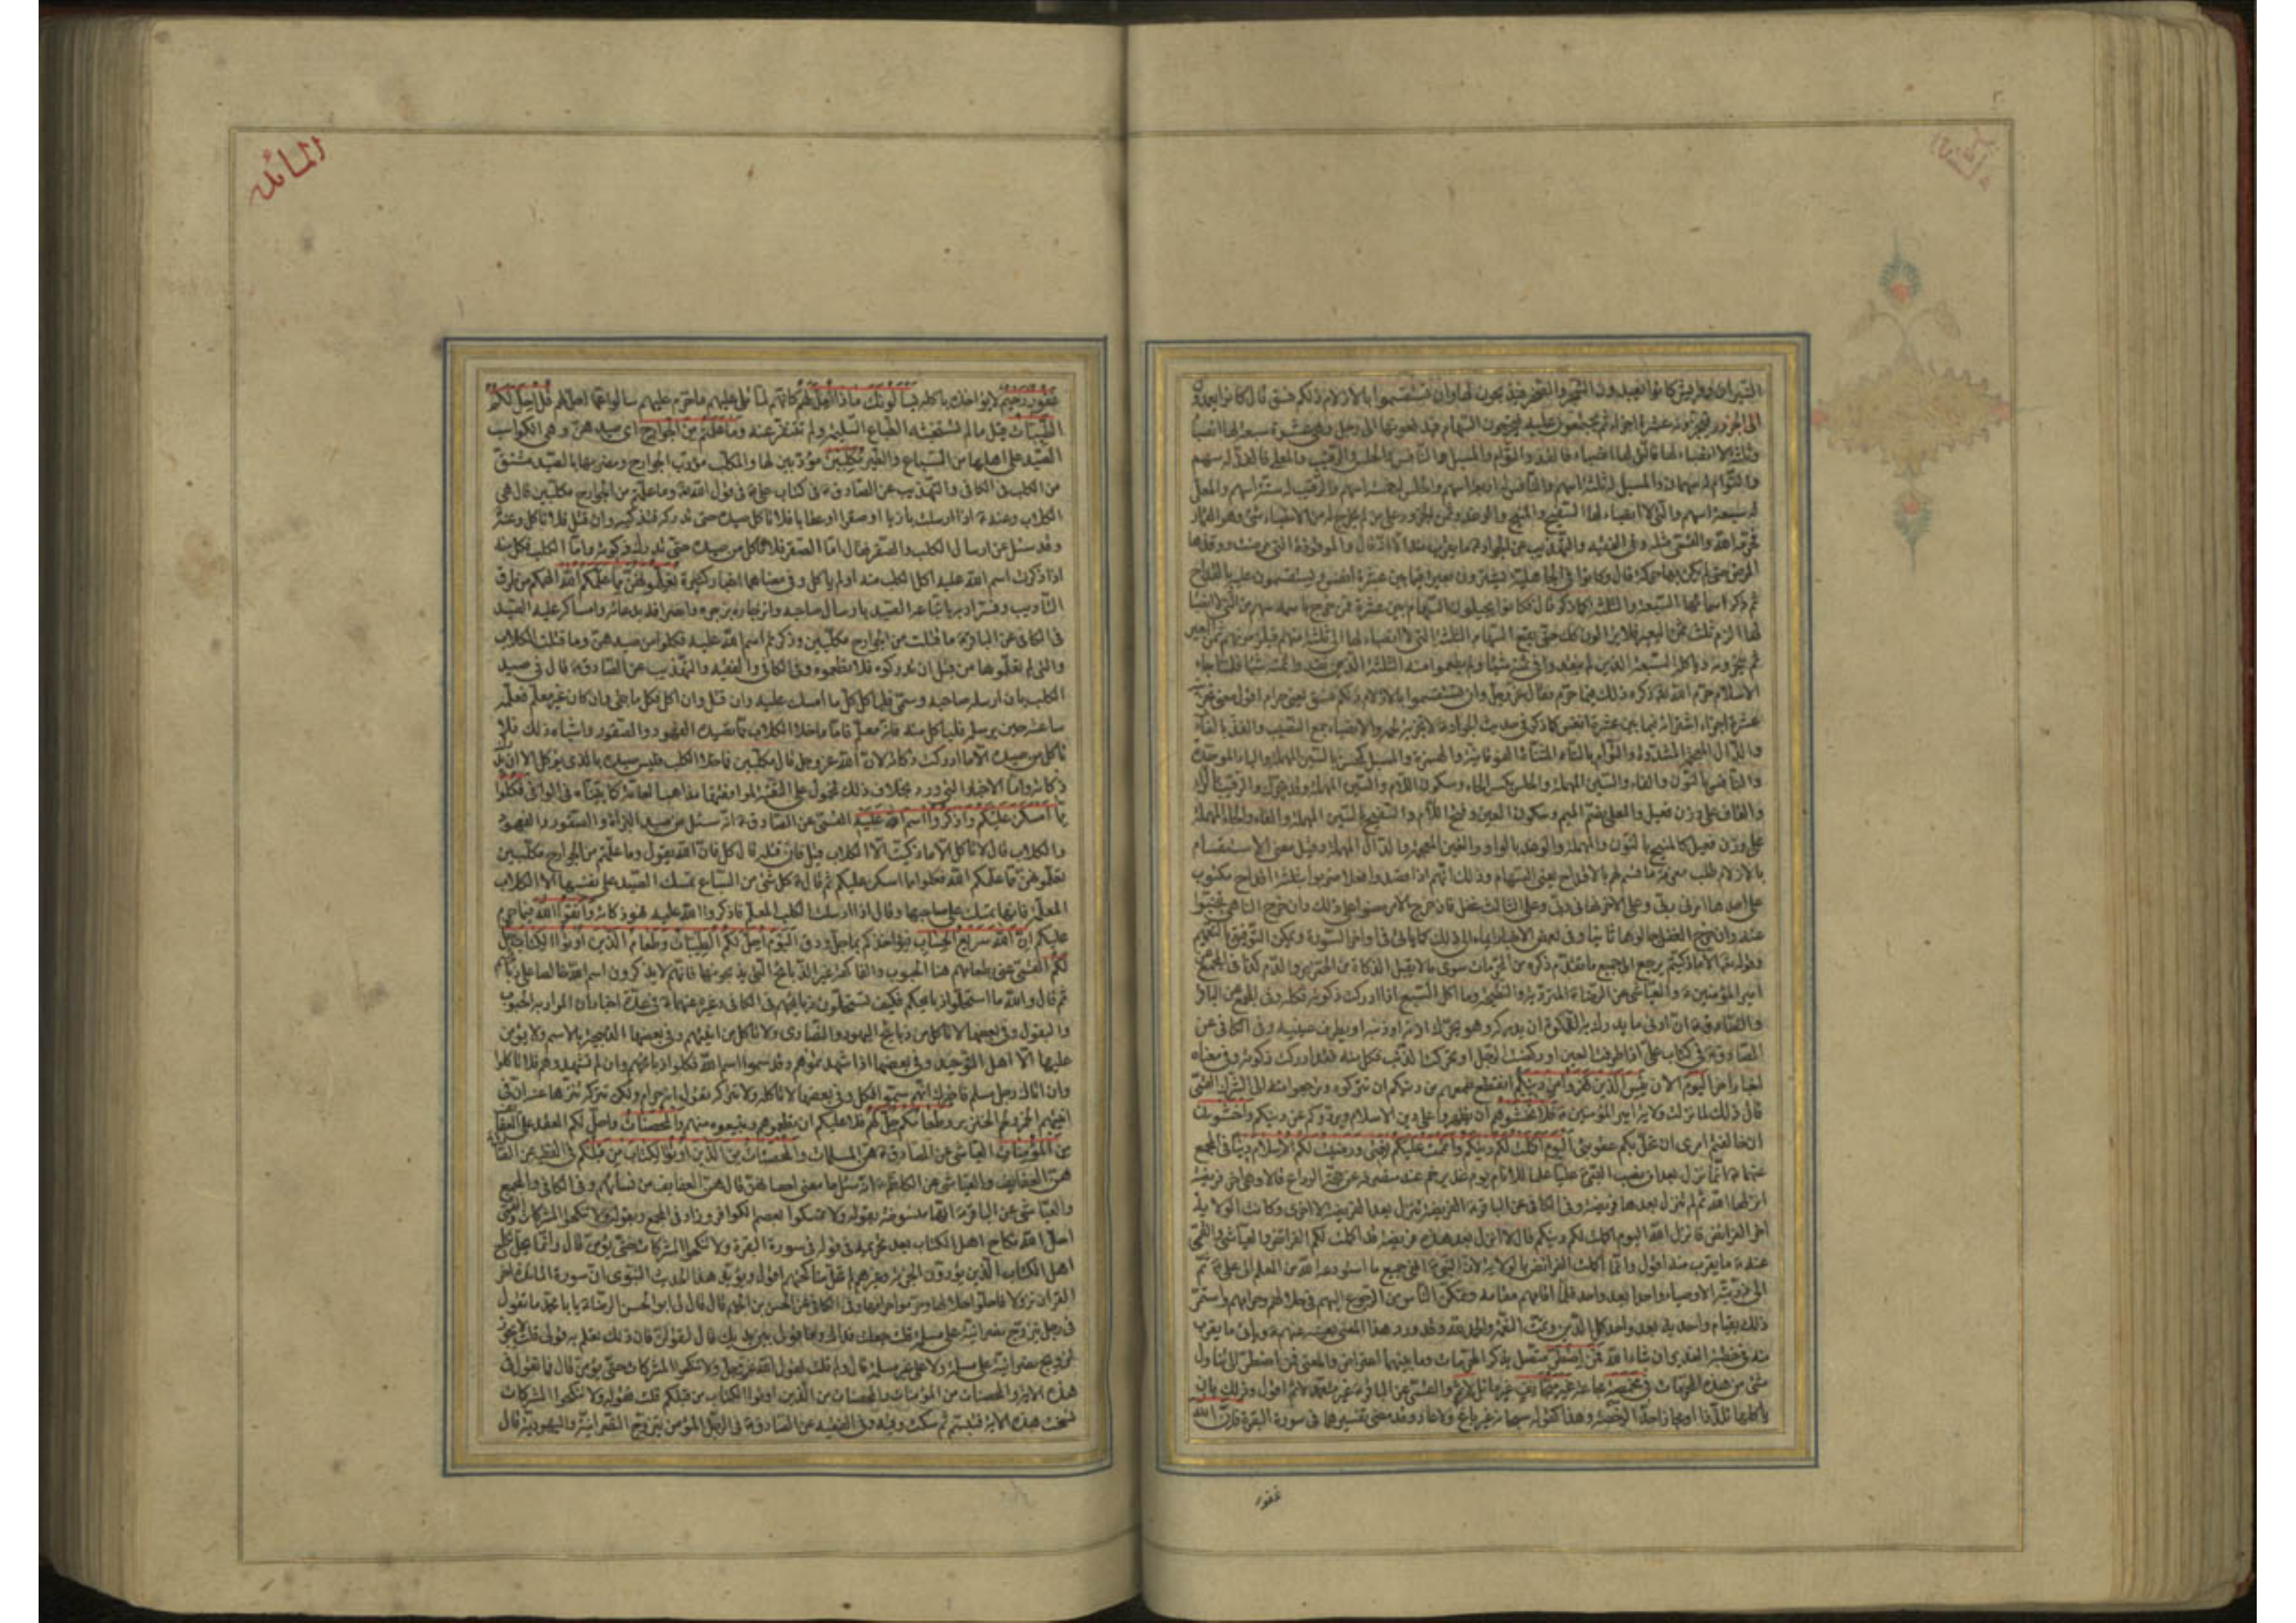 النيران وقريش كانوا يعبدون الشجر والصخر فيذبحون لها وان تستقسموا بالازلام ذلكم فسق قال كانوا يعمدون
الى الجزور فيجزونه عشرة اجزاء ثم يجتمعون عليه فيخرجون السهام فيدفعونها الى رجل وهى عشرة سبعة لها انصباء
وثلثة لا انصباء لها فالتى لها انصباء فالفذ والتوأم والمسبل والنافس والحلس والرقيب والمعلى فالفذ له سهم
والتوأم له سهمان والمسبل له ثلثة اسهم والنافس له اربعة اسهم والحلس له خمسة اسهم والرقيب له ستة اسهم والمعلى
له سبعة اسهم والتى لا انصباء لها السفيح والمنيح والوغد وثمن الجزور على من لم يخرج له من الانصباء شئ وهو القمار
فحرمه الله
المرض حتى لم يكن بها حركة قال وكانوا فى الجاهلية يشترون بعيرا فيما بين عشرة انفس ويستقسمون عليه بالقداح
ثم ذكر اسمائها السبعة والثلثة كما ذكر قال فكانوا يجيلون السهام بين عشرة فمن خرج باسمه سهم من التى لا انصباء
لها الزم ثلث ثمن البعير فلا يزالون كذلك حتى يقع السهام الثلثة التى لا انصباء لها الى ثلثة منهم فيلزمونهم ثمن البعير
ثم ينحرونه وياكل السبعة الذين لم ينقدوا فى ثمنه شيئا ولم يطعموا منه الثلثة الذين نقدوا ثمنه شيئا فلما جاء
الاسلام حرم الله تعالى ذكره ذلك فيما حرم فقال عز وجل وان تستقسموا بالازلام ذلكم فسق يعنى حرام اقول معنى تجزيته
عشرة اجزاء اشتراؤه فيما بين عشرة انفس كما ذكر فى حديث الجواد لا تجزية لحمه والانصباء جمع النصيب والفذ بالفاء
والذال المعجمة المشددة والتوأم بالتاء المثناة الفوقانية والهمزة والمسبل كمحسن بالسين المهملة والباء الموحدة
والنافس بالنون والفاء والسين المهملة والحلس بكسر الحاء وسكون اللام والسين المهملة وقد يحرك والرقيب بالراء
والقاف على وزن فعيل والمعلى بضم الميم وسكون العين وفتح اللام والسفيح بالسين المهملة والفاء والحاء المهملة
على وزن فعيل كالمنيح بالنون والمهملة والوغد بالواو والغين المعجمة والدال المهملة وقيل معنى الاستقسام
بالازلام طلب معرفة ما قسم لهم بالاقداح يعنى السهام وذلك انهم اذا قصدوا فعلا ضربوا ثلثة اقداح مكتوب
على احدها امرنى ربى وعلى الاخر نهانى ربى وعلى الثالث غفل فان خرج الامر مضوا على ذلك وان خرج الناهى تجنبوا
عنه وان خرج الغفل اجالوها ثانيا وفى بعض الاخبار ايماء الى ذلك كما ياتى فى اواخر السورة ويمكن التوفيق بالتعميم
وقوله تعالى الا ما ذكيتم يرجع الى جميع ما تقدم ذكره من المحرمات سوى ما لا يقبل الذكاة من الخنزير والدم كذا فى المجمع عن
امير المؤمنين ع والعياشى عن الرضا ع المتردية والنطيحة وما اكل السبع اذا ادركت ذكوته فكله وفى المجمع عن الباقر
والصادق ع ان ادنى ما يدرك به الذكوة ان يدركه وهو يحرك اذنه او ذنبه او يطرف عينيه وفى الكافى عن
الصادق ع فى كتاب على اذا طرفت العين او ركضت الرجل او تحرك الذنب فكل منه فقد ادركت ذكوته وفى معناه
اخبار اخر اليوم الان يئس الذين كفروا من دينكم انقطع طمعهم من دينكم ان تتركوه وترجعوا منه الى الشرك القمى
قال ذلك لما نزلت ولاية امير المؤمنين ع فلا تخشوهم ان يظهروا على دين الاسلام ويردوكم عن دينكم واخشون
ان خالفتم امرى ان تحل بكم عقوبتى اليوم اكملت لكم دينكم واتممت عليكم نعمتى ورضيت لكم الاسلام دينا فى المجمع
عنهما ع انما نزل بعد ان نصب النبى ص عليا علما للانام يوم غدير خم عند منصرفه عن حجة الوداع قالا وهى اخر فريضة
انزلها الله ثم لم ينزل بعدها فريضة وفى الكافى عن الباقر ع الفريضة تنزل بعد الفريضة الاخرى وكانت الولاية
اخر الفرائض فانزل الله اليوم اكملت لكم دينكم قال لا انزل بعد هذه فريضة قد اكملت لكم الفرائض والعياشى والقمى
عنه ع ما يقرب منه اقول وانما اكملت الفرائض بالولاية لان النبى ص انهى جميع ما استودعه الله من العلم الى على ع ثم
الى ذريته الاوصياء واحدا بعد واحد فلما اقامهم مقامه وتمكن الناس من الرجوع اليهم فى حلالهم وحرامهم واستمر
ذلك بقيام واحد به بعد واحد كمل الدين وتمت النعمة والحمد لله وقد ورد هذا المعنى بعينه عنهم ع وياتى ما يقرب
منه فى خطبة الغدير ان شاء الله فمن اضطر متصل بذكر المحرمات وما بينهما اعتراض والمعنى فمن اضطر الى تناول
شئ من هذه المحرمات فى مخمصة مجاعة غير متجانف غير مائل لاثم والقمى عن الباقر ع غير متعمد لاثم اقول وذلك بان
ياكلها تلذذا او مجاوزا حد الرخصة وهذا كقوله سبحانه غير باغ ولا عاد وقد مضى تفسيرهما فى سورة البقرة فان الله
غفور
المائده
غفور رحيم لا يؤاخذه باكله يسألونك ماذا احل لهم كانهم لما تلى عليهم ما حرم عليهم سالوا عما احل لهم قل احل لكم
الطيبات قيل ما لم تستخبثه الطباع السليمة ولم تتنفر عنه وما علمتم من الجوارح اى صيدهن وهى الكواسب
الصيد على اهلها من السباع والطير مكلبين مؤدبين لها والمكلب مؤدب الجوارح ومغريها بالصيد مشتق
من الكلب فى الكافى والتهذيب عن الصادق ع فى كتاب على ع فى قول الله تعالى وما علمتم من الجوارح مكلبين قال هى
الكلاب وعنه ع اذا ارسلت بازيا او صقرا او عقابا فلا تاكل صيده حتى تدركه فتذكيه وان قتل فلا تاكل وعنه ع
وقد سئل عن ارسال الكلب والصقر فقال اما الصقر فلا تاكل من صيده حتى تدرك ذكوته واما الكلب فكل منه
اذا ذكرت اسم الله عليه اكل الكلب منه او لم ياكل وفى معناهما اخبار كثيرة تعلمونهن مما علمكم الله الهمكم من طرق
التاديب وفسر
فى الكافى عن الباقر ع ما قتلت من الجوارح مكلبين وذكر اسم الله عليه فكلوا من صيدهن وما قتلت الكلاب
والتى لم تعلموها من قبل ان تدركوه فلا تطعموه وفى الكافى والفقيه والتهذيب عن الصادق ع قال فى صيد
الكلب ان ارسله صاحبه وسمى فلياكل كل ما امسك عليه وان قتل وان اكل فكل ما بقى وان كان غير معلم فعلمه
ساعته حين يرسله فلياكل منه فانه معلم فاما ما خلا الكلاب مما تصيده الفهود والصقور واشباه ذلك فلا
تاكل من صيده الا ما ادركت ذكاته لان الله عز وجل قال مكلبين فما خلا الكلب فليس صيده بالذى يؤكل الا ان تدرك
ذكاته واما الاخبار التى وردت بخلاف ذلك محمول على التقية لموافقتها مذاهب العامة كما بيناه فى الوافى فكلوا
مما امسكن عليكم واذكروا اسم الله عليه القمى عن الصادق ع انه سئل عن صيد البزاة والصقور والفهود
والكلاب قال لا تاكل الا ما ذكيت الا الكلاب قيل فان قتله قال كل فان الله يقول وما علمتم من الجوارح مكلبين
تعلمونهن مما علمكم الله فكلوا مما امسكن عليكم ثم قال ع كل شئ من السباع تمسك الصيد على نفسها الا الكلاب
المعلمة فانها تمسك على صاحبها وقال اذا ارسلت الكلب المعلم فاذكروا الله عليه فهو ذكاته واتقوا الله فيما حرم
عليكم ان الله سريع الحساب فيؤاخذكم بما جل ودق اليوم احل لكم الطيبات وطعام الذين اوتوا الكتاب حل
لكم القمى عنى بطعامهم هنا الحبوب والفاكهة غير الذبائح التى يذبحونها فانهم لا يذكرون اسم الله خالصا على ذبائحهم
ثم قال والله ما استحلوا ذبائحكم فكيف تستحلون ذبائحهم فى الكافى وغيره عنهما ع فى عدة اخبار ان المراد به الحبوب
والبقول وفى بعضها لا تاكل من ذبائح اليهود والنصارى ولا تاكل من انيتهم وفى بعضها الذبيحة بالاسم ولا يؤمن
عليها الا اهل التوحيد وفى بعضها اذا شهدتموهم وقد سموا اسم الله فكلوا ذبائحهم وان لم تشهدوهم فلا تاكلوا
وان اتاك رجل مسلم فاخبرك انهم سموا فكل وفى بعضها لا تاكله ولا تتركه تقول انه حرام ولكن تتركه تنزها عنه ان فى
انيتهم الخمر ولحم الخنزير وطعامكم حل لهم فلا عليكم ان تطعموهم وتبيعوه منهم والمحصنات واحل لكم العقد على العفائف
من المؤمنات العياشى عن الصادق ع هن المسلمات والمحصنات من الذين اوتوا الكتاب من قبلكم فى الفقيه عن الصادق ع
هن العفايف والعياشى عن الكاظم ع انه سئل ما معنى احصانهن قال هن العفايف من نسائهم وفى الكافى والمجمع
والعياشى عن الباقر ع انها منسوخة بقوله ولا تمسكوا بعصم الكوافر وزاد فى المجمع وبقوله ولا تنكحوا المشركات والقمى
احل الله نكاح اهل الكتاب بعد تحريمه فى قوله فى سورة البقرة ولا تنكحوا المشركات حتى يؤمن قال وانما يحل نكاح
اهل الكتاب الذين يؤدون الجزية وغيرهم لم تحل مناكحتهم اقول ويؤيد هذا الحديث النبوى ان سورة المائدة اخر
القران نزولا فاحلوا حلالها وحرموا حرامها وفى الكافى عن الحسن بن الجهم قال قال لى ابو الحسن الرضا ع يا با محمد ما تقول
فى رجل يتزوج نصرانية على مسلمة قلت جعلت فداك وما قولى بين يديك قال لتقولن فان ذلك تعلم به قولى قلت لا يجوز
تزويج نصرانية على مسلمة ولا على غير مسلمة قال ولم قلت لقول الله عز وجل ولا تنكحوا المشركات حتى يؤمن قال فما تقول فى
هذه الاية والمحصنات من المؤمنات والمحصنات من الذين اوتوا الكتاب من قبلكم قلت فقوله ولا تنكحوا المشركات
نسخت هذه الاية فتبسم ثم سكت وفيه وفى الفقيه عن الصادق ع فى الرجل المؤمن يتزوج النصرانية واليهودية قال